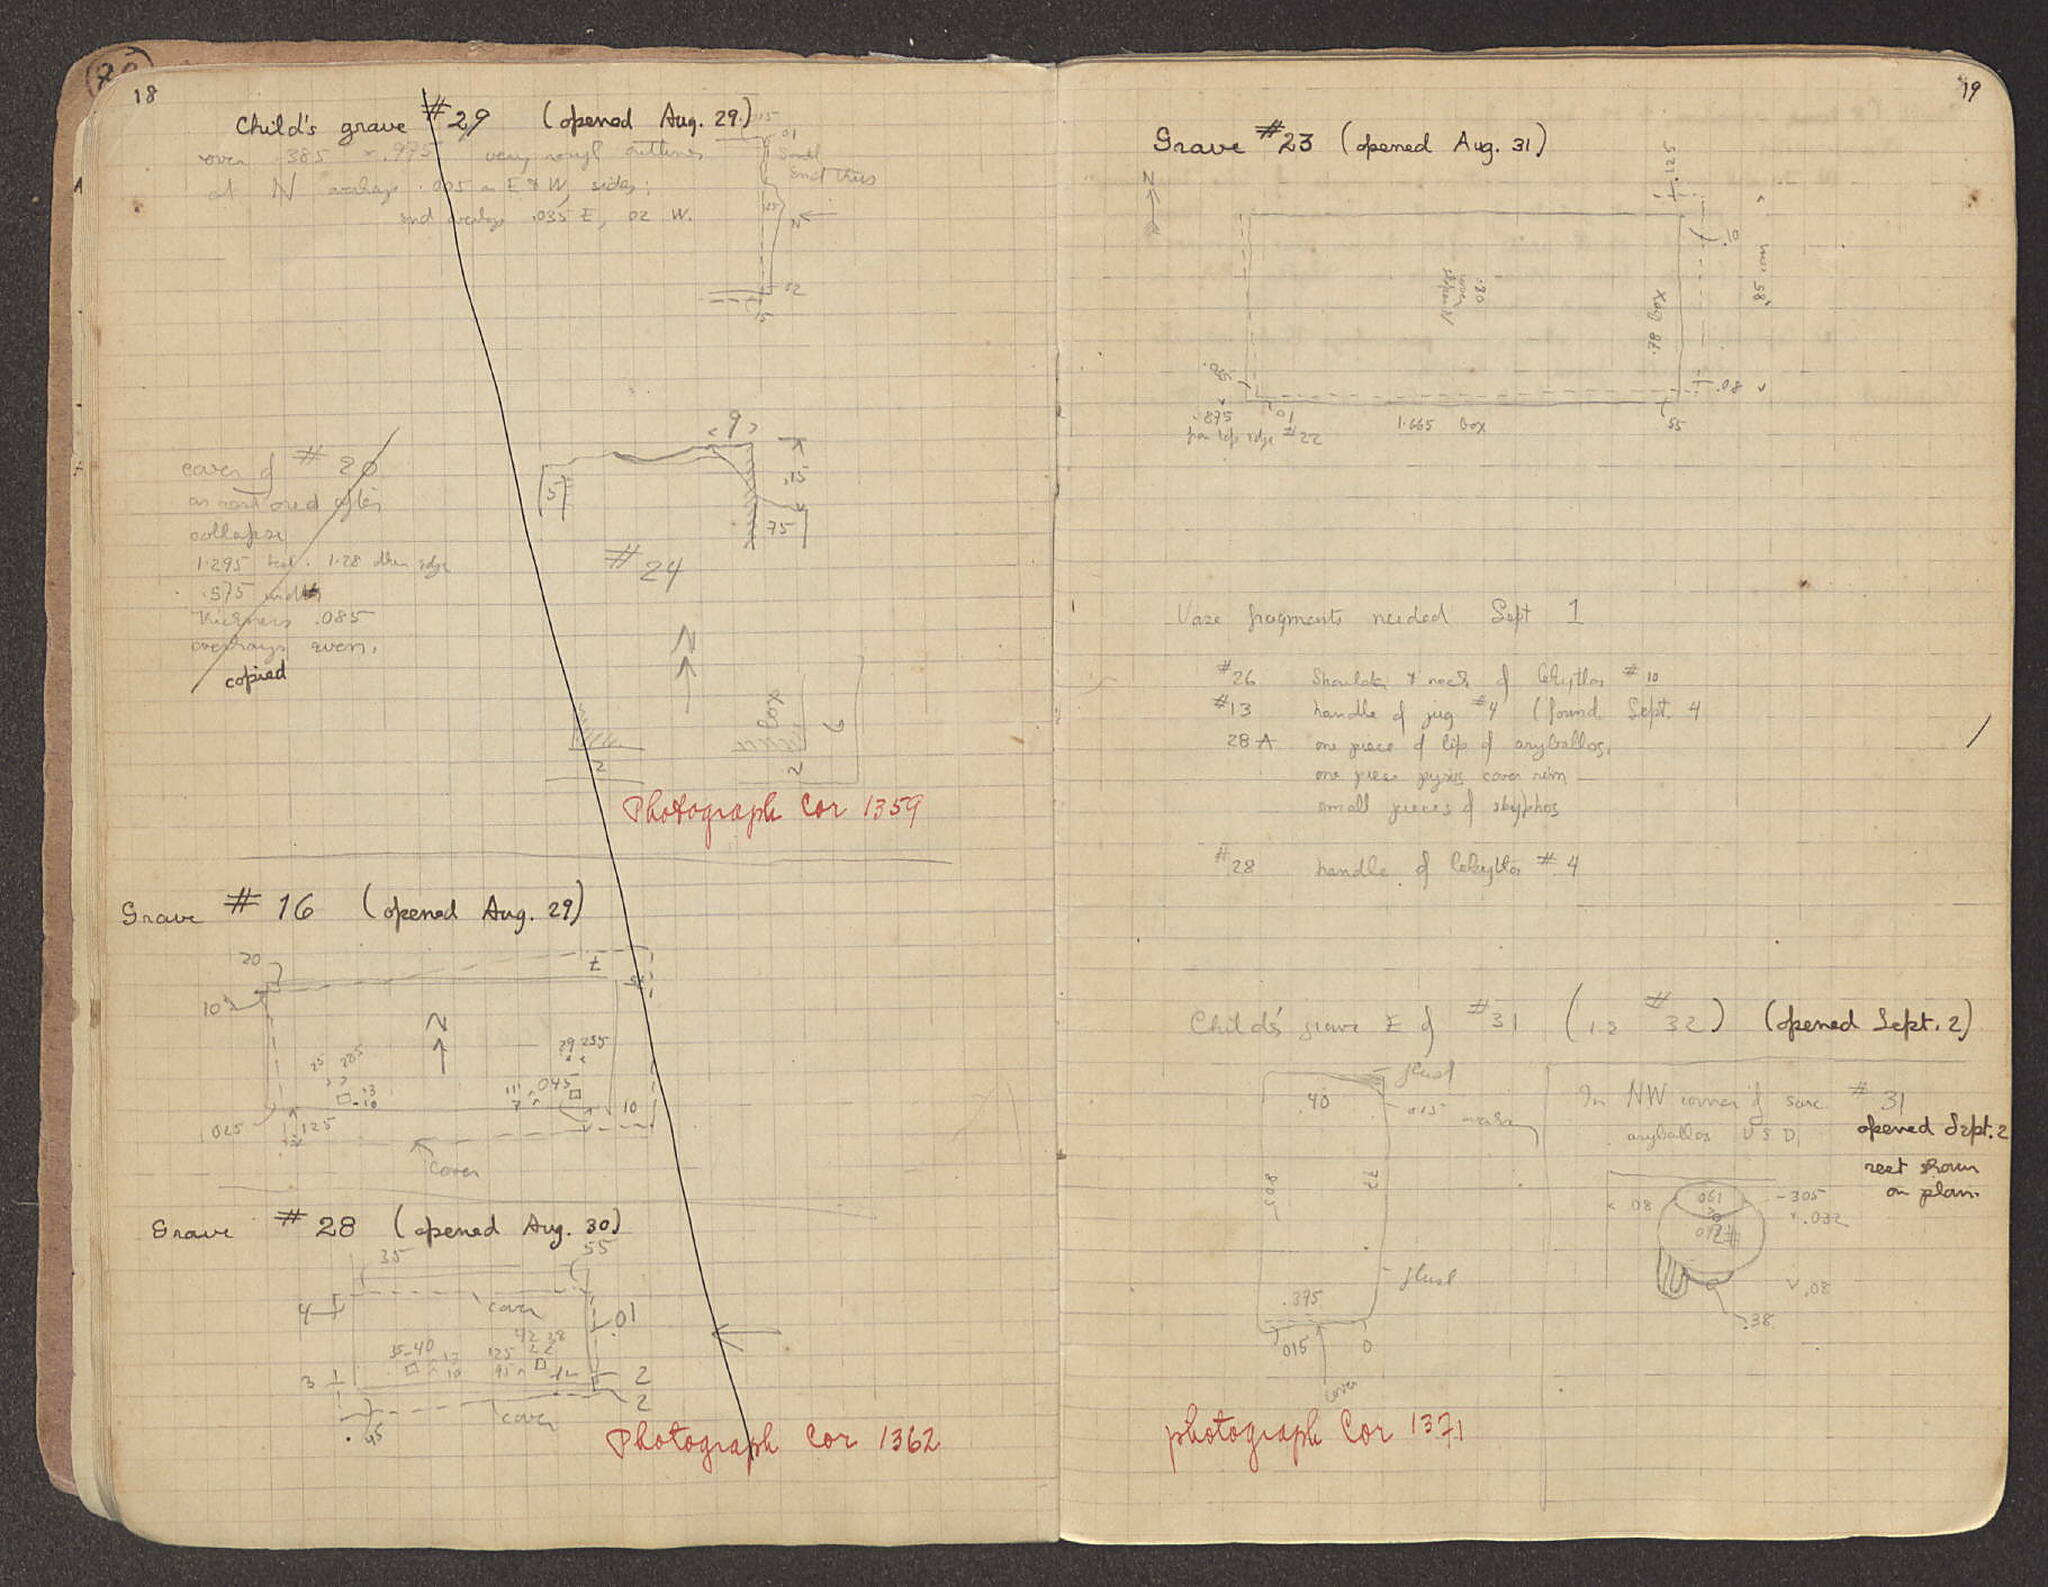 18
Child's grave #29 (opened Aug. 29.)
cover .385 × .975 very rough outlines
at N overlaps .005 on E & W sides;
end overlaps .035 E, .02 W.
15
01
Small
End this
N
52
15
cover of #20
as restored after
collapse
1.295 1.28 other edge
.575 width
thickness .085
overhangs even.
copied
9
.15
5
75
#24
N
box
2
2
9
Photograph Cor 1359
Grave #16 (opened Aug. 29)
20
7
10
N
25 285
29 255
13
10
11
7
.045
10
025
125
cover
Grave #28 (opened Aug. 30)
35
55
4
cover
.01
35-40
13
10
42 28
125
3
2
2
cover
.45
Photograph Cor 1362
19
Grave #23 (opened Aug. 31)
N
.125
.10
.85 cover
.20
.78
.08
.875
from top edge #22
.01
1.665 box
55
Vase fragments needed Sept 1
#26 Shoulder & neck of lekythos #10
#13 handle of jug #4 (found Sept. 4
28-A one piece of lip of aryballos.
one piece pyxis cover rim
small pieces of skyphos
#28 handle of lekythos #4
Child's grave E of #31 (i.e. #32) (opened Sept. 2)
.40
flush
.015
77
.805
flush
.395
015
0
cover
In NW corner of sarc. #31
aryballos U S D,
opened Sept. 2
rest shown
on plan.
.08
061
.305
.032
.08
.38
photograph Cor 1371